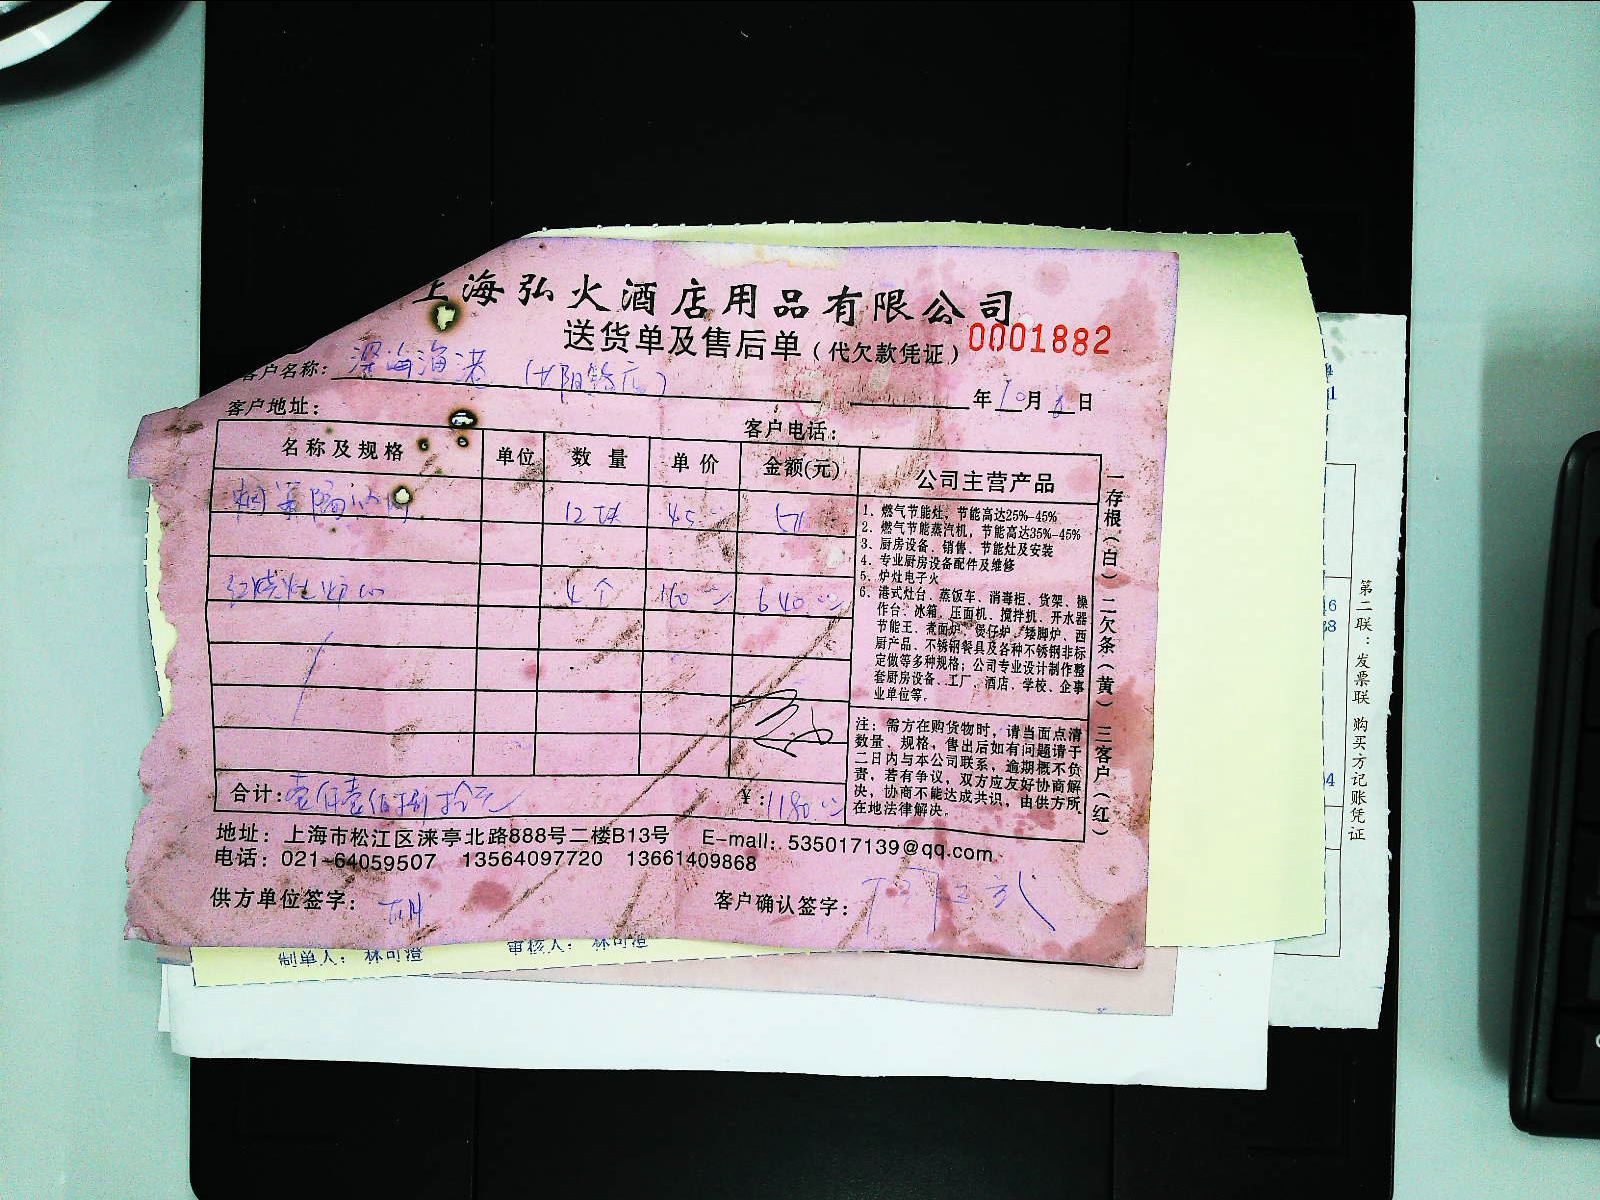 上海弘火酒店用品有限公司
送货单及售后单（代欠款凭证） 0001882
客户名称： 深海渔港
年10月 日
客户地址： 客户电话：
名称及规格 单位 数量 单价 金额(元) 公司主营产品
12块 45
红烧灶炉心 4个 160 640
1、燃气节能灶，节能高达25%-45%
2、燃气节能蒸汽机，节能高达35%-45%
3、厨房设备、销售、节能灶及安装
4、专业厨房设备配件及维修
5、炉灶电子火
6、港式灶台、蒸饭车、消毒柜、货架、操
作台、冰箱、压面机、搅拌机、开水器
节能王、煮面炉、煲仔炉、矮脚炉、西
厨产品、不锈钢餐具及各种不锈钢非标
定做等多种规格；公司专业设计制作整
套厨房设备、工厂、酒店、学校、企事
业单位等。
注：需方在购货物时，请当面点清
数量、规格，售出后如有问题请于
二日内与本公司联系，逾期概不负
责，若有争议，双方应友好协商解
决，协商不能达成共识，由供方所
在地法律解决。
合计：壹仟壹佰捌拾元 ¥：1180
一存根（白）二欠条（黄）三客户（红）
地址：上海市松江区涞亭北路888号二楼B13号 E-mall：535017139@qq.com
电话：021-64059507 13564097720 13661409868
供方单位签字： 客户确认签字：
制单人：林可澄 审核人：林可澄
第二联：发票联 购买方记账凭证